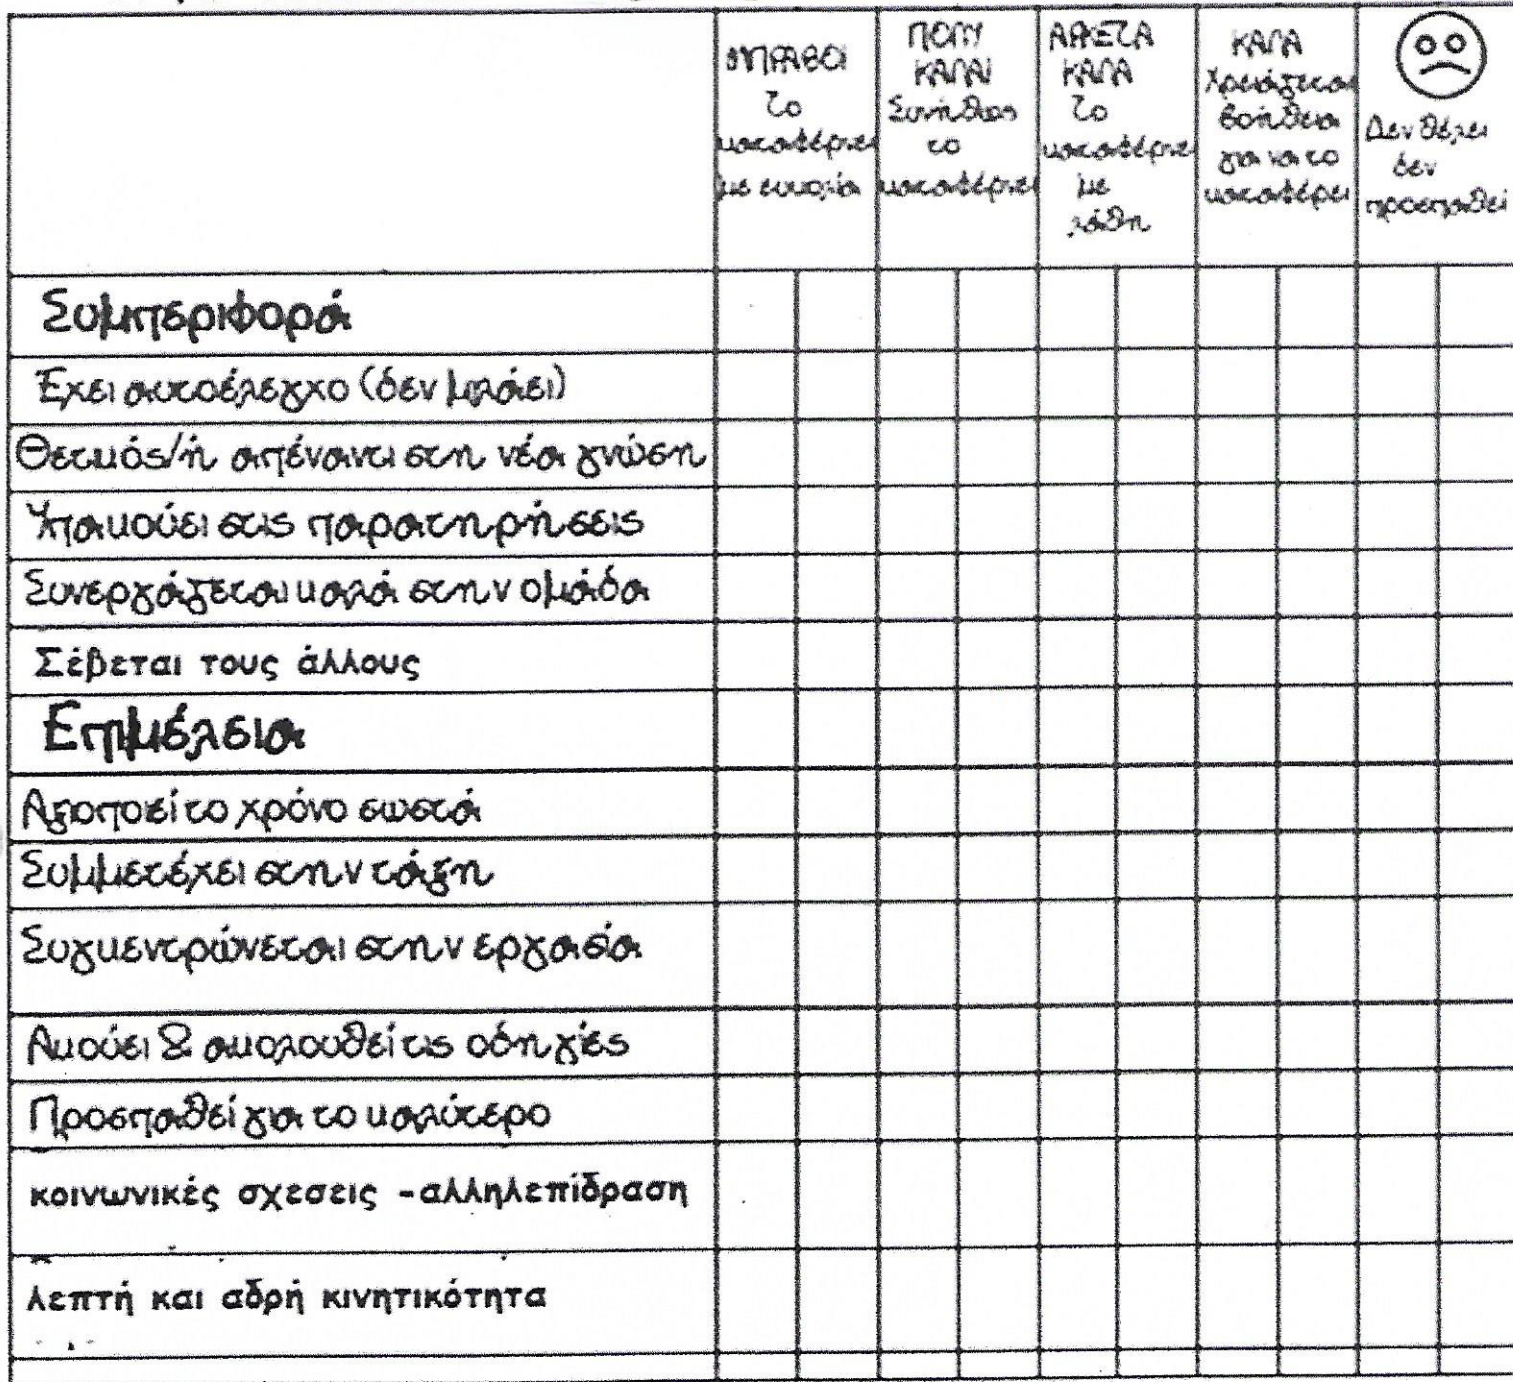 ΜΠΡΑΒΟ!
Το
καταφέρνει
με ευκολία
ΠΟΛΥ
ΚΑΛΑ!
Συνήθως
το
καταφέρνει
ΑΡΚΕΤΑ
ΚΑΛΑ
Το
καταφέρνει
με
λάθη
ΚΑΛΑ
Χρειάζεται
βοήθεια
για να το
καταφέρει
Δεν θέλει
δεν
προσπαθεί
Συμπεριφορά
Έχει αυτοέλεγχο (δεν μιλάει)
Θετικός/ή απέναντι στη νέα γνώση
Υπακούει στις παρατηρήσεις
Συνεργάζεται καλά στην ομάδα
Σέβεται τους άλλους
Επιμέλεια
Αξιοποιεί το χρόνο σωστά
Συμμετέχει στην τάξη
Συγκεντρώνεται στην εργασία
Ακούει & ακολουθεί τις οδηγίες
Προσπαθεί για το καλύτερο
κοινωνικές σχεσεις -αλληλεπίδραση
λεπτή και αδρή κινητικότητα